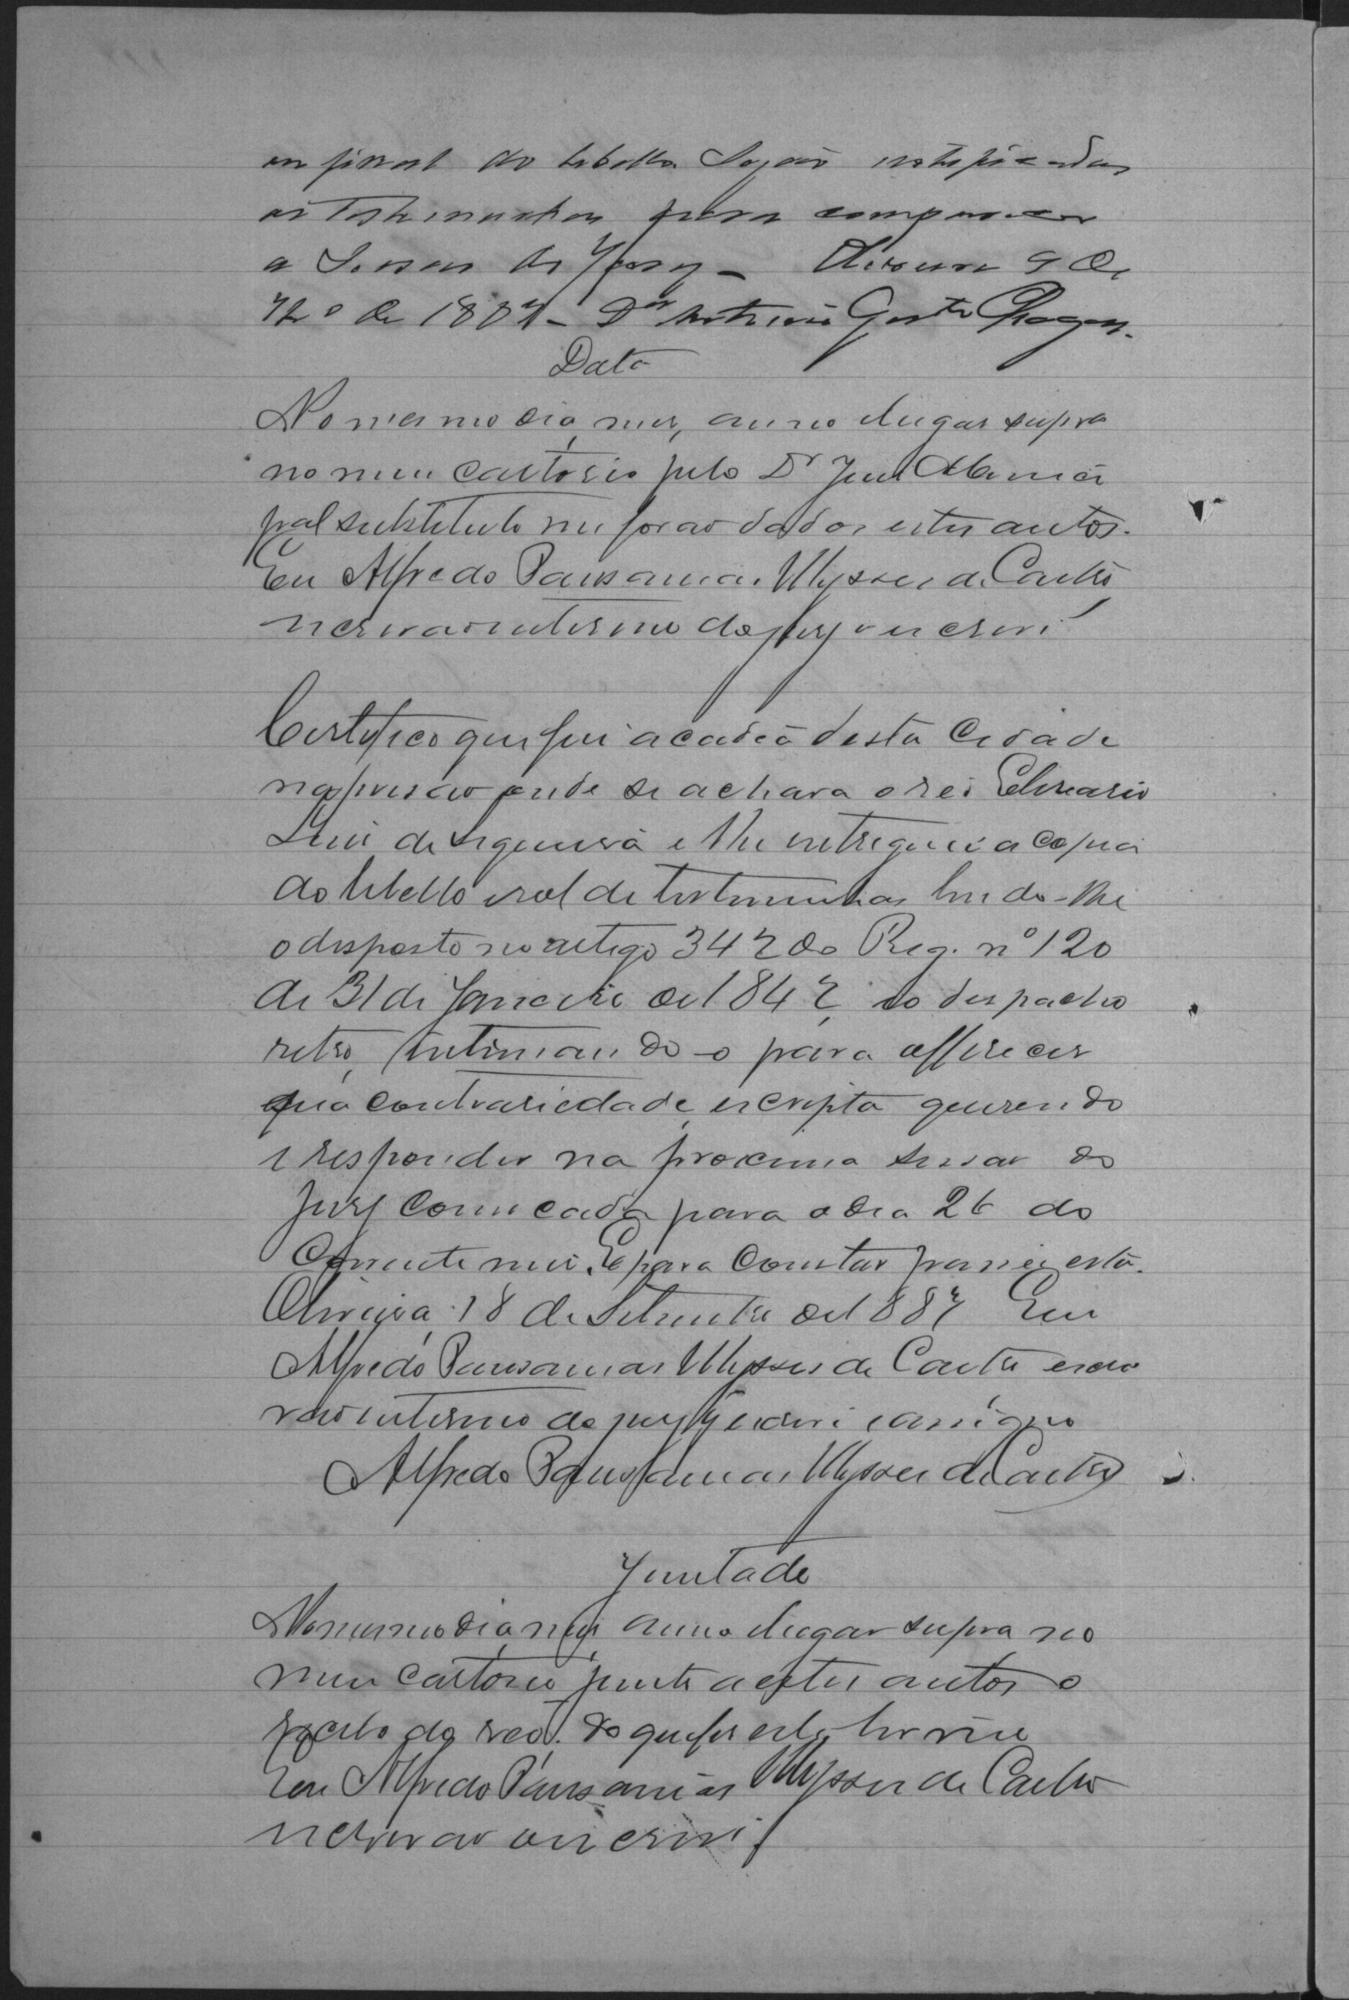 no final do libello. Sejão notificadas
as testemunhas para comparecer
a Sessão do Jury – Oliveira 9 de
7bro de 1887 – Dr Antonio Justo Chagas.
Data
No mesmo dia, mes, anno e lugar supra
no meu cartorio pelo Dr Juiz Munici
pal substituto me forão dados estes autos.
Eu Alfredo Pausanias Ulysses de Castro,
escrivão interino do jury o escrevi
Certifico que fui a cadeia desta Cidade
na prisão onde se achava o réo
Luis de Siqueira e lhe entreguei a copia
do libello e rol de testemunhas lendo-lhe
o disposto no artigo 342 do Reg. nº 120
de 31 de Janeiro de 1842, e o despacho
retro, intimando-o para offerecer
sua contrariedade escripta querendo
e responder na proxima sessão do
jury convocada para o dia 26 do
corrente mes. E para constar passei esta.
Oliveira, 18 de Setembro de 1887 Eu
Alfredo Pausanias Ulysses de Castro escri
vão interino do jury q escrevi e assigno
Alfredo Pausanias Ulysses de Castro
Juntada
No mesmo dia, mes, anno e lugar supra no
meu cartorio junto a estes autos o
recibo do reo. do que fiz este termo
Eu Alfredo Pausanias Ulysses de Castro
escrivão o escrevi.